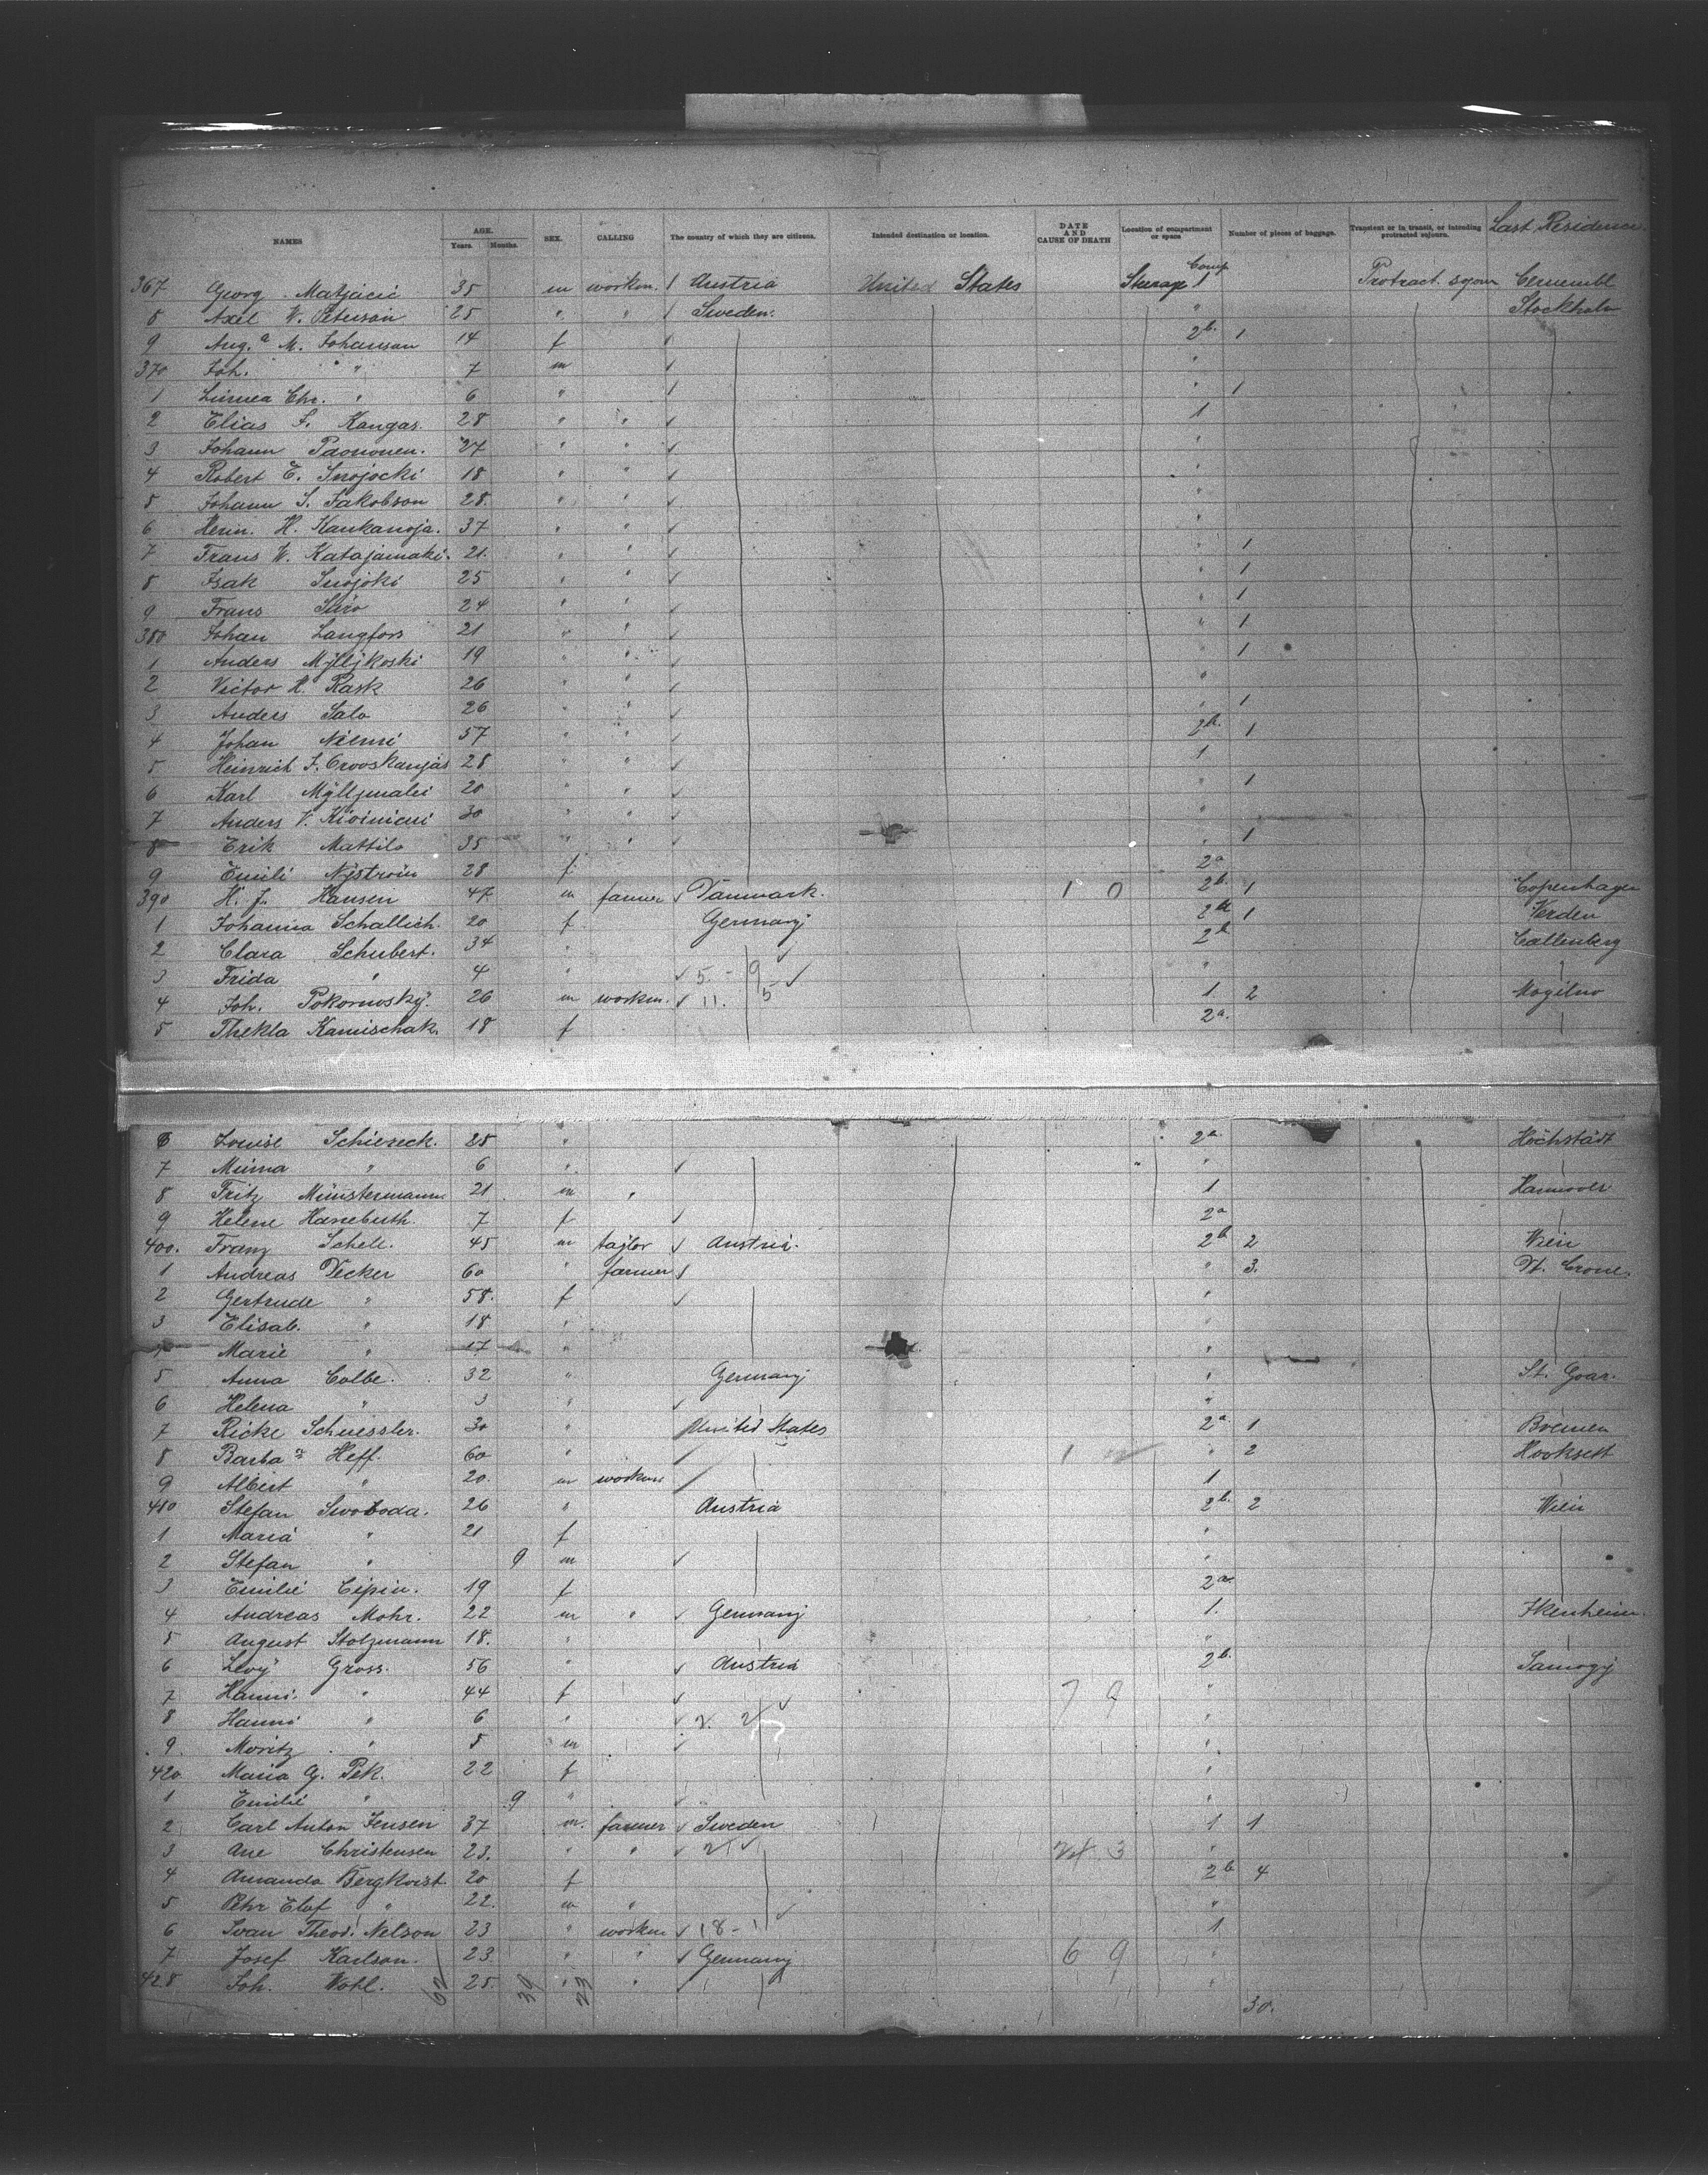 NAMES AGE. Years. Months. SEX. CALLING The country of which they are citizens. Intended destination or location. DATE AND CAUSE OF DEATH Location of compartment or space Number of pieces of baggage. Transient or in transit, or intending protracted sojourn. Last Residence.
367 Georg Matjacic 35 m workm. Austria United States Steerage Comp 1 Protract. sojour
8 Axel W. Peterson 25 " " Sweden. " Stockholm
9 Aug.a M. Johanson 14 f 2b. 1
370 Joh. " 7 m "
1 Linnea Chr. " 6 " " 1
2 Elias F. Kangas. 28 " " 1
3 Johann 27 " " "
4 Robert E. 18 " " "
5 Johann S. Jakobson 28. " " "
6 Herm. H. Kankanoja. 37 " " "
7 Frans W. Katajamaki. 21. " " " 1
8 Isak 25 " " " 1
9 Frans 24 " " " 1
380 Johan Langfors 21 " " " 1
1 Anders Myllykoski 19 " " " 1
2 Victor H. Rask 26 " " "
3 Anders Salo 26 " " " 1
4 Johan Niemi 57 " " 2b. 1
5 Heinrich J. 28 " " 1
6 Karl 20 " " " 1
7 Anders V. 30 " " "
8 Erik Mattila 35 " " " 1
9 Emili Nyström 28 f. 2a
390 H. J. Hansen 47 m farmer Danmark. 1 0 2b. 1 Copenhagen
1 Johanna Schallich. 20 f Germany 1 Verden
2 Clara Schubert. 34 " 2b Callenberg
3 Frida " 4 " 5 - 9 "
4 Joh. Pokornosky. 26 m workm. 11. 5 1 2 Mogilno
5 Thekla Kamischak. 18 f 2a.
6 Louise Schiereck. 25 " 2a Höchstädt
7 Minna " 6 " "
8 Fritz Münstermann 21 m " 1 Hannover
9 Helene Hanebuth. 7 f 2a
400. Franz Schell. 45 m taylor Austria. 2b 2 Wien
1 Andreas Decker 60 " farmer " 3.
2 Gertrude " 58. f "
3 Elisab. " 18 " "
4 Marie " 17 " "
5 Anna Colbe. 32 " Germany " St. Goar.
6 Helena " 3 " "
7 Ricke Schuessler. 30 " United States 2a 1 Bremen
8 Barba Heff. 60 " 1 " 2 Hooksett
9 Albert " 20. m workm 1
410 Stefan Swoboda. 26 " Austria 2b. 2 Wien
1 Maria " 21 f "
2 Stefan " 9 m "
3 Emilie Cipin. 19 f 2a
4 Andreas Mohr. 22 m " Germany 1.
5 August Stolzmann 18. " "
6 Levy Gross. 56 " Austria 2b.
7 Hanni. " 44 f 7 9 "
8 Hanni " 6 " "
9. Moritz " 5 m "
420 Maria G. Pek. 22 f "
1 Emilie " 9 " "
2 Carl Anton Jensen 37 m. farmer Sweden 1 1
3 Ane Christensen 23. " " 3 "
4 Amanda Bergkvist 20 f 2b 4
5 Pehr Elof " 22. m " "
6 Svan Theod. Nelson 23 " workm 18 - 11 1
7 Josef Karlson. 23. " " Germany 6 9 "
428 Joh. Wohl. 25. " " "
62 39 23 30.